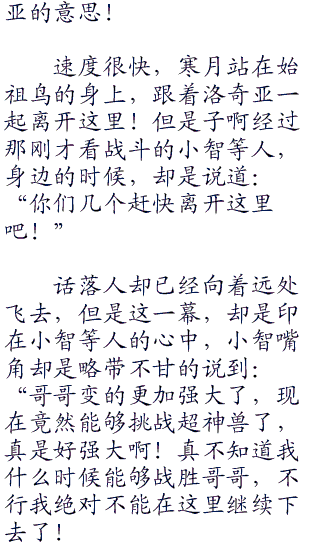 亚的意思！
速度很快，寒月站在始
祖鸟的身上，跟着洛奇亚一
起离开这里！但是子啊经过
那刚才看战斗的小智等人，
身边的时候，却是说道：
“你们几个赶快离开这里
吧！”
话落人却已经向着远处
飞去，但是这一幕，却是印
在小智等人的心中，小智嘴
角却是略带不甘的说到：
“哥哥变的更加强大了，现
在竟然能够挑战超神兽了，
真是好强大啊！真不知道我
什么时候能够战胜哥哥，不
行我绝对不能在这里继续下
去了！